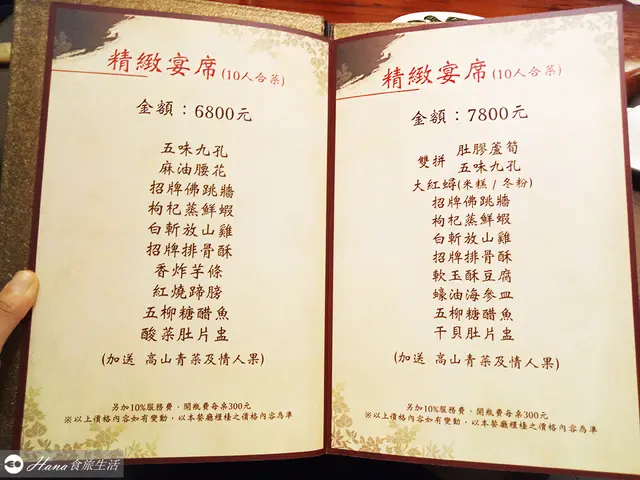 精緻宴席(10人合菜)
金額：6800元
五味九孔
麻油腰花
招牌佛跳牆
枸杞蒸鮮蝦
白斬放山雞
招牌排骨酥
香炸芋條
紅燒蹄膀
五柳糖醋魚
酸菜肚片盅
(加送 高山青菜及情人果)
另加10%服務費，開瓶費每桌300元
※以上價格內容如有變動，以本餐廳櫃檯之價格內容為準
精緻宴席(10人合菜)
金額：7800元
雙拼 肚膠蘆筍
五味九孔
大紅蟳(米糕 / 冬粉)
招牌佛跳牆
枸杞蒸鮮蝦
白斬放山雞
招牌排骨酥
軟玉酥豆腐
蠔油海參皿
五柳糖醋魚
干貝肚片盅
(加送 高山青菜及情人果)
另加10%服務費，開瓶費每桌300元
※以上價格內容如有變動，以本餐廳櫃檯之價格內容為準
Hana食旅生活